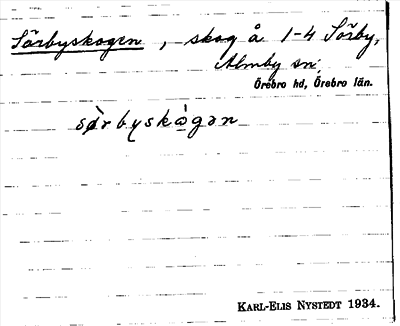 Sörbyskogen, skog å 1-4 Sörby,
Almby sn,
Örebro hd, Örebro län.
sö̀rbyskò̠gən
KARL-ELIS NYSTEDT 1934.